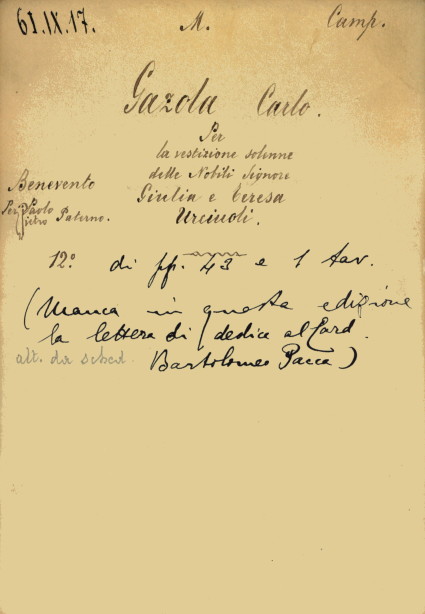 61.IX.17. M. Camp.
Gazola Carlo.
Per
la vestizione solenne
delle Nobili Signore
Benevento Giulia e Teresa
Per Paolo
Pietro Paterno. Urciuoli.
12.° di pp. 43 e 1 tav.
(Manca in questa edizione
la lettera di dedica al Card.
alt. da sched. Bartolomeo Pacca)